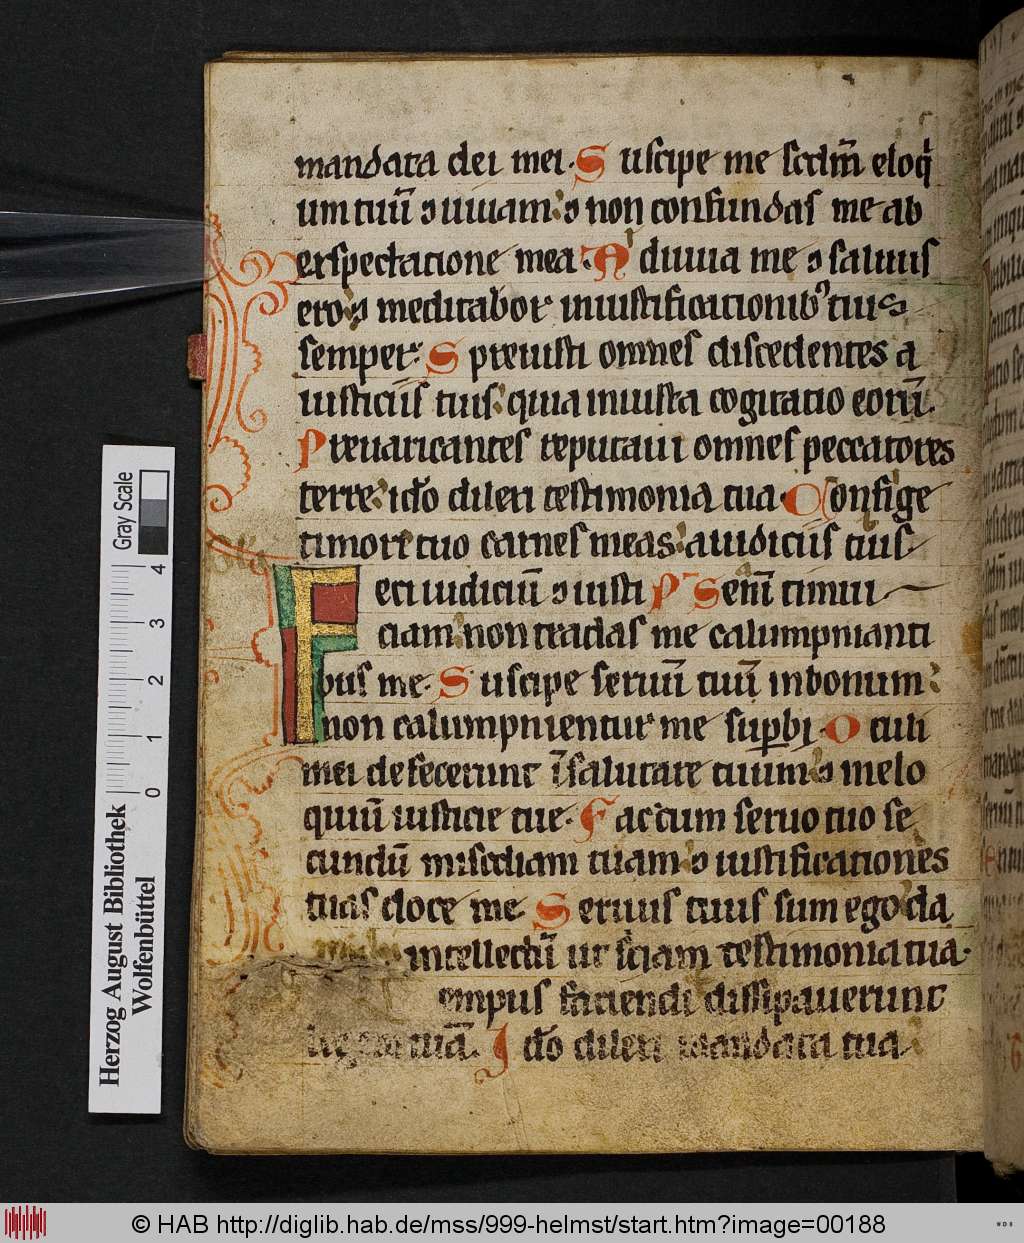 mandata dei mei. Suscipe me scdm̄ eloq
um tuū ⁊ uiuam: ⁊ non confundas me ab
exspectatione mea. Adiuua me ⁊ saluus
ero: ⁊ meditabor iniustificationib; tuis
semper: Spreuisti omnes discedentes a
iusticiis tuis: quia iniusta cogitatio eorū.
Preuaricantes reputaui omnes peccatores
terre: ido dilexi testimonia tua. Confige
timore tuo carnes meas: a iudiciis tuis
Feci iudiciū ⁊ iusti P Senī timui
ciam: non tradas me calumpnianti
bus me. Suscipe seruū tuū inbonum:
non calumpnientur me supbi. Oculi
mei defecerunt ī salutare tuum: ⁊ inelo
quiū iusticie tue. Fac cum seruo tuo se
cundū miscdiam tuam: ⁊ iustificationes
tuas doce me Seruus tuus sum ego: da
intellectū ut sciam testimonia tua.
empus faciendi dissipauerunt
tuā. Ido dilexi mandata tua
Gray Scale
0 1 2 3 4
Herzog August Bibliothek
Wolfenbüttel
© HAB http://diglib.hab.de/mss/999-helmst/start.htm?image=00188
WDB